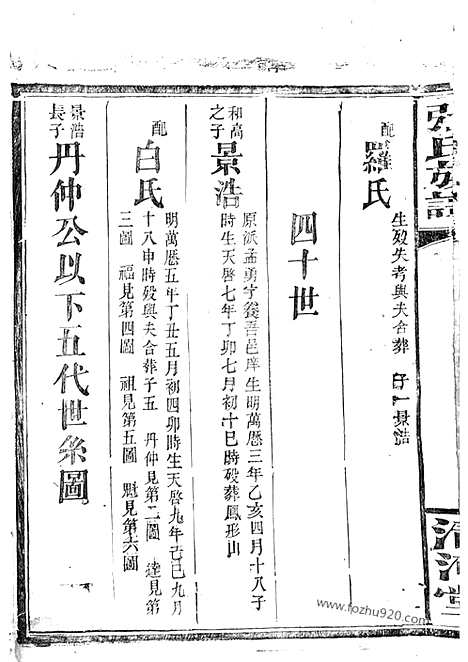 張氏族譜
清河堂
配羅氏 生歿失考與夫合葬 子一景浩
四十世
和高之子
景浩
原派孟勇字後吾邑庠生明萬曆三年乙亥四月十八子
時生天啓七年丁卯七月初十巳時殁葬鳳形山
配白氏
明萬曆五年丁丑五月初四卯時生天啓九年己巳九月
十八申時殁與夫合葬子五 丹仲見第二圖 達見第
三圖 福見第四圖 祖見第五圖 魁見第六圖
景浩長子
丹仲公以下五代世系圖
www.fozhu920.com